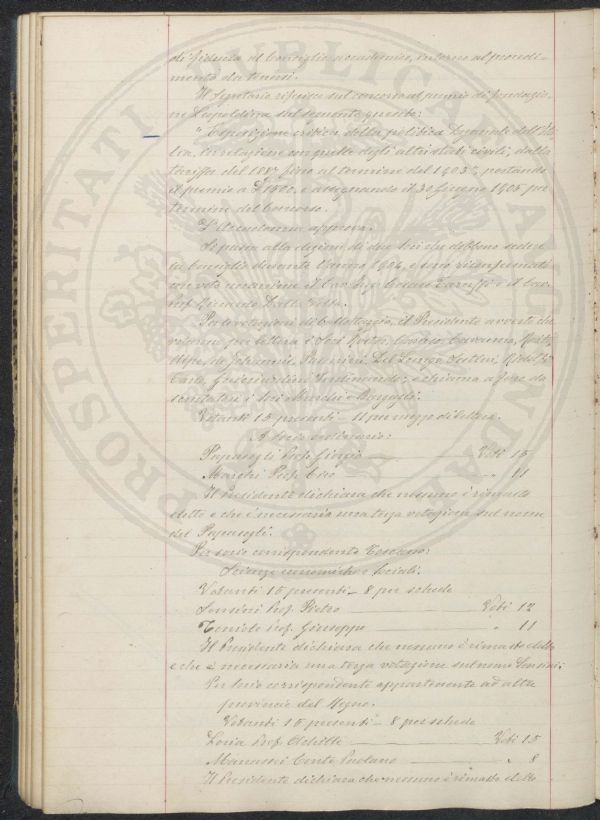 di fiducia al Consiglio accademico, intorno al procedi-
mento da tenersi.
Il Segretario riferisce sul concorso al premio di fondazio-
ne Leopoldina sul seguente quesito:
"Esposizione critica della politica doganale dell'Ita-
lia, in relazione con quelle degli altri stati civili, dalla
tariffa del 1887 fino al termine del 1903", portando
il premio a £ 1500, e assegnando il 30 Giugno 1905 per
termine del Concorso.
L'Accademia approva.
Si passa alla elezione di due Soci che debbono sedere
in Consiglio durante l'anno 1904, e sono riconfermati
con voto unanime il Cav.
Prof. Riccardo Dalla Volta.
Per le votazioni di ballottaggio, il Presidente avverte che
votarono per lettera i Soci
Carlo, Guicciardini Ferdinando; e chiama a fare da
scrutatori i Soci Marchi e Bargagli.
Votanti 15 presenti - 11 per mezzo di lettere.
A Socio ordinario:
Papasogli Prof. Giorgio Voti 15
Marchi Prof. Ezio " 11
Il Presidente dichiara che nessuno è rimasto
eletto e che è necessaria una terza votazione sul nome
del Papasogli.
Per socio corrispondente Toscano:
Scienze economiche e Sociali.
Votanti 15 presenti - 8 per schede
Sensini Prof. Pietro Voti 12
Toniolo Prof. Giuseppe " 11
Il Presidente dichiara che nessuno è rimasto eletto
e che è necessaria una terza votazione sul nome Sensini.
Per Socio corrispondente appartenente ad altre
provincie del Regno.
Votanti 15 presenti - 8 per schede
Loria Prof. Achille Voti 15
Manassei Conte Paolano " 8
Il Presidente dichiara che nessuno è rimasto eletto
PROSPERITATI PUBLICAE